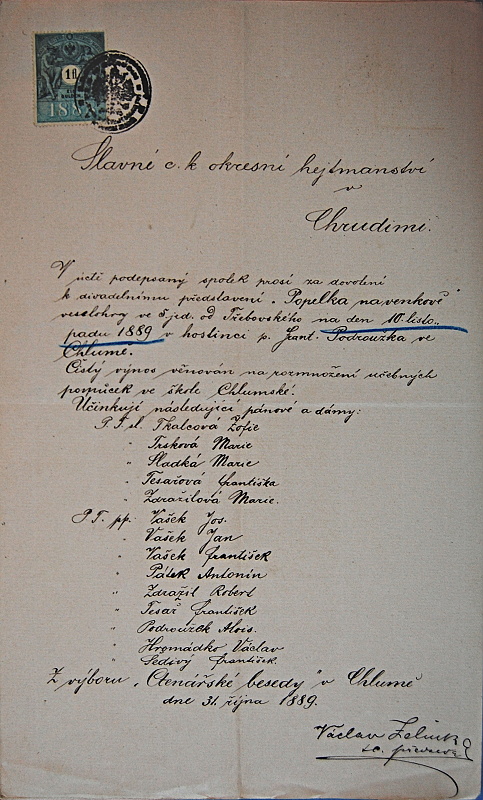 1 fl
188
Slavné c. k. okresní hejtmanství
v
Chrudimi.
V úctě podepsaný spolek prosí za dovolení
k divadelnímu představení „Popelka na venkově"
veselohry ve 5 jed. od Třebovského na den 10. listo„
padu 1889 v hostinci p. Frant. Podroužka ve
Chlumě.
Čistý výnos věnován na rozmnožení učebných
pomůcek ve škole Chlumské.
Účinkují následující pánové a dámy:
P. T. sl. Tkalcová Žofie
" Trsková Marie
" Sladká Marie
" Tesařová Františka
" Zdražilová Marie.
P. T. pp. Vašek Jos.
" Vašek Jan
" Vašek František
" Pátek Antonín
" Zdražil Robert
" Tesař František
" Podroužek Alois.
" Hromádko Václav
" Šedivý František.
Z výboru „Čtenářské besedy" v Chlumě
dne 31. října 1889.
Václav